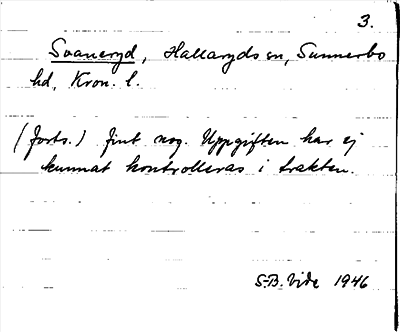 3.
Svaneryd, Hallaryds sn, Sunnerbo
hd, Kron. l.
(forts.) fint nog. Uppgiften har ej
kunnat kontrolleras i trakten.
S-B. Vide 1946